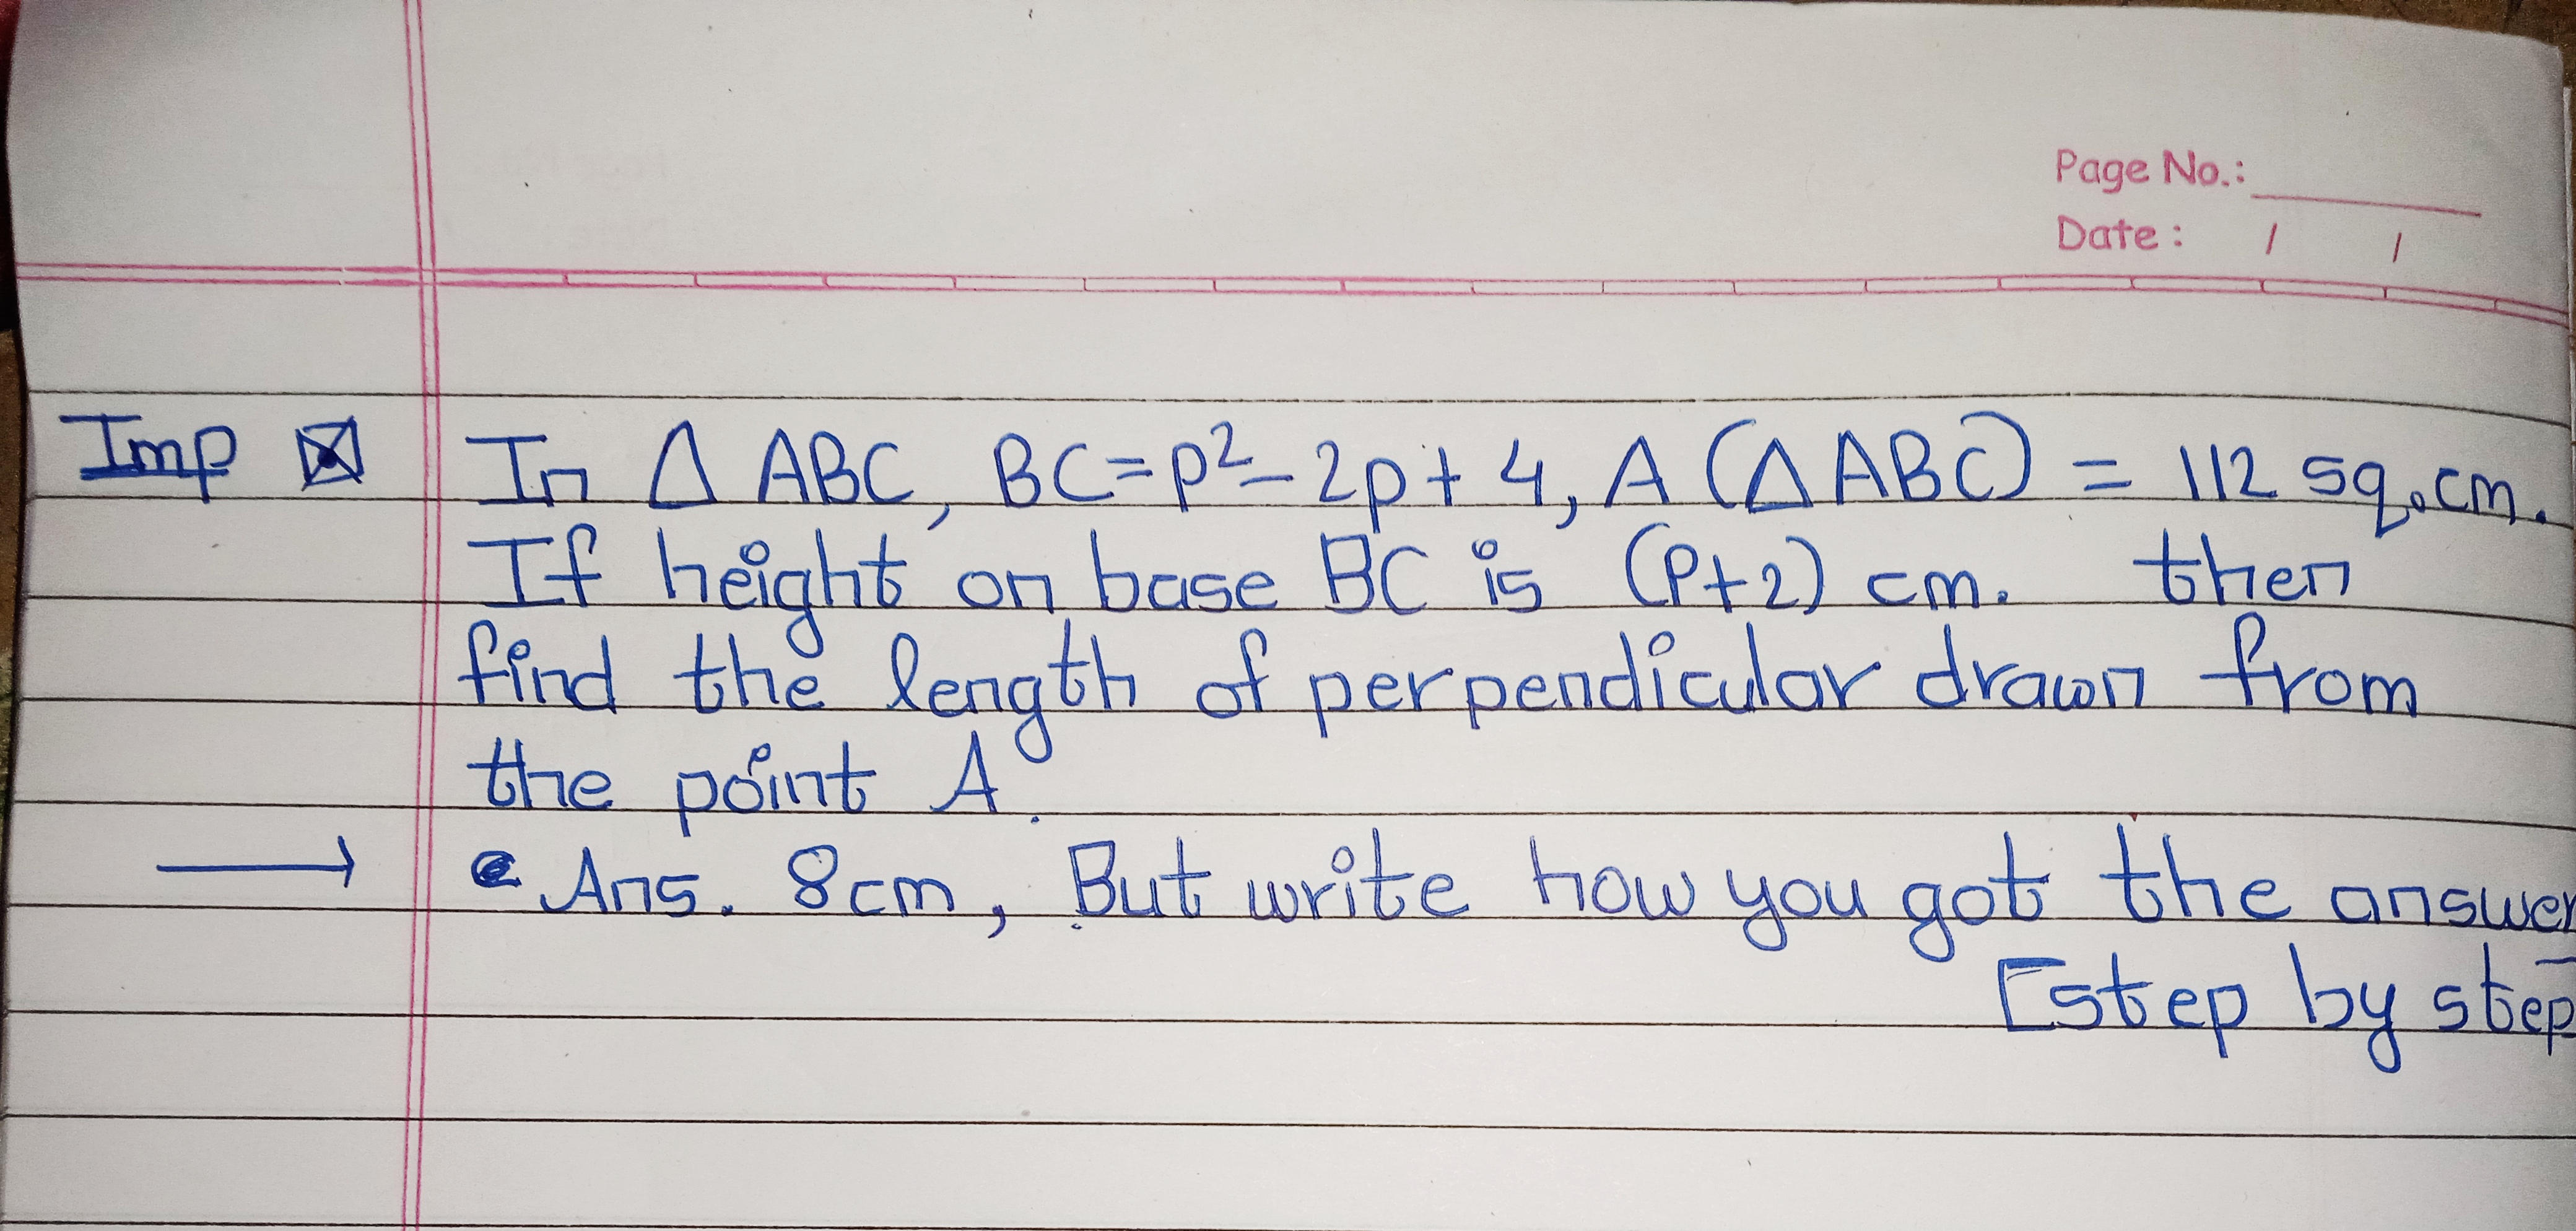 Page No.:
Date: / /
Imp In Δ ABC, BC=p²-2p+4, A (Δ ABC) = 112 sq.cm.
If height on base BC is (P+2) cm. then
find the length of perpendicular drawn from
the point A.
Ans. 8cm, But write how you got the answer
[step by step